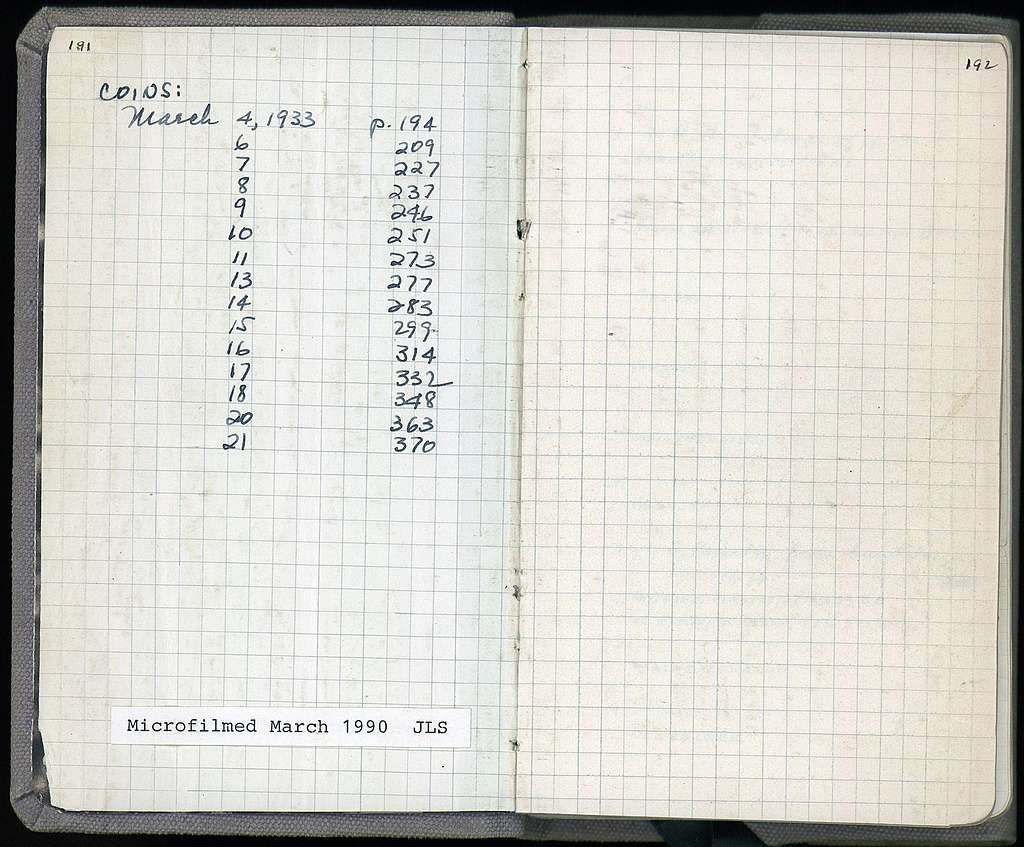 191
COINS:
March 4, 1933 p. 194
6 209
7 227
8 237
9 246
10 251
11 273
13 277
14 283
15 299
16 314
17 332
18 348
20 363
21 370
Microfilmed March 1990 JLS
192